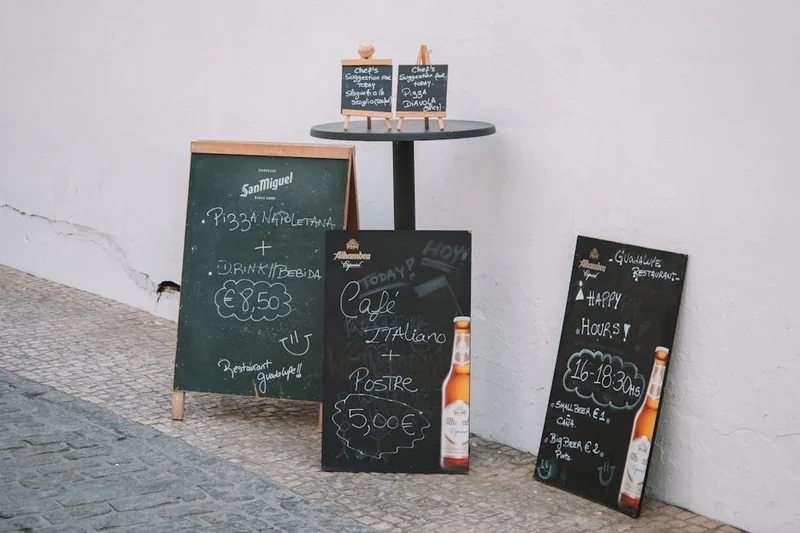 Chef's
Suggestion for
TODAY
Chef's
Suggestion for
TODAY.
Pizza
DiAVOlA
SanMiguel
Pizza NApoletana
+
DRiNK//BEBIDA
€8,50
Restaurant
guadalupe!!
Alhambra
Especial
TODAY!
HOY!
Café
ITAliano
+
POSTRE
5,00€
Alhambra
GUADALUPE
RESTAURANT
HAPPY
HOURS!
16-18:30HS
SMALL BEER € 1.
CAÑA.
BIG BEER € 2.